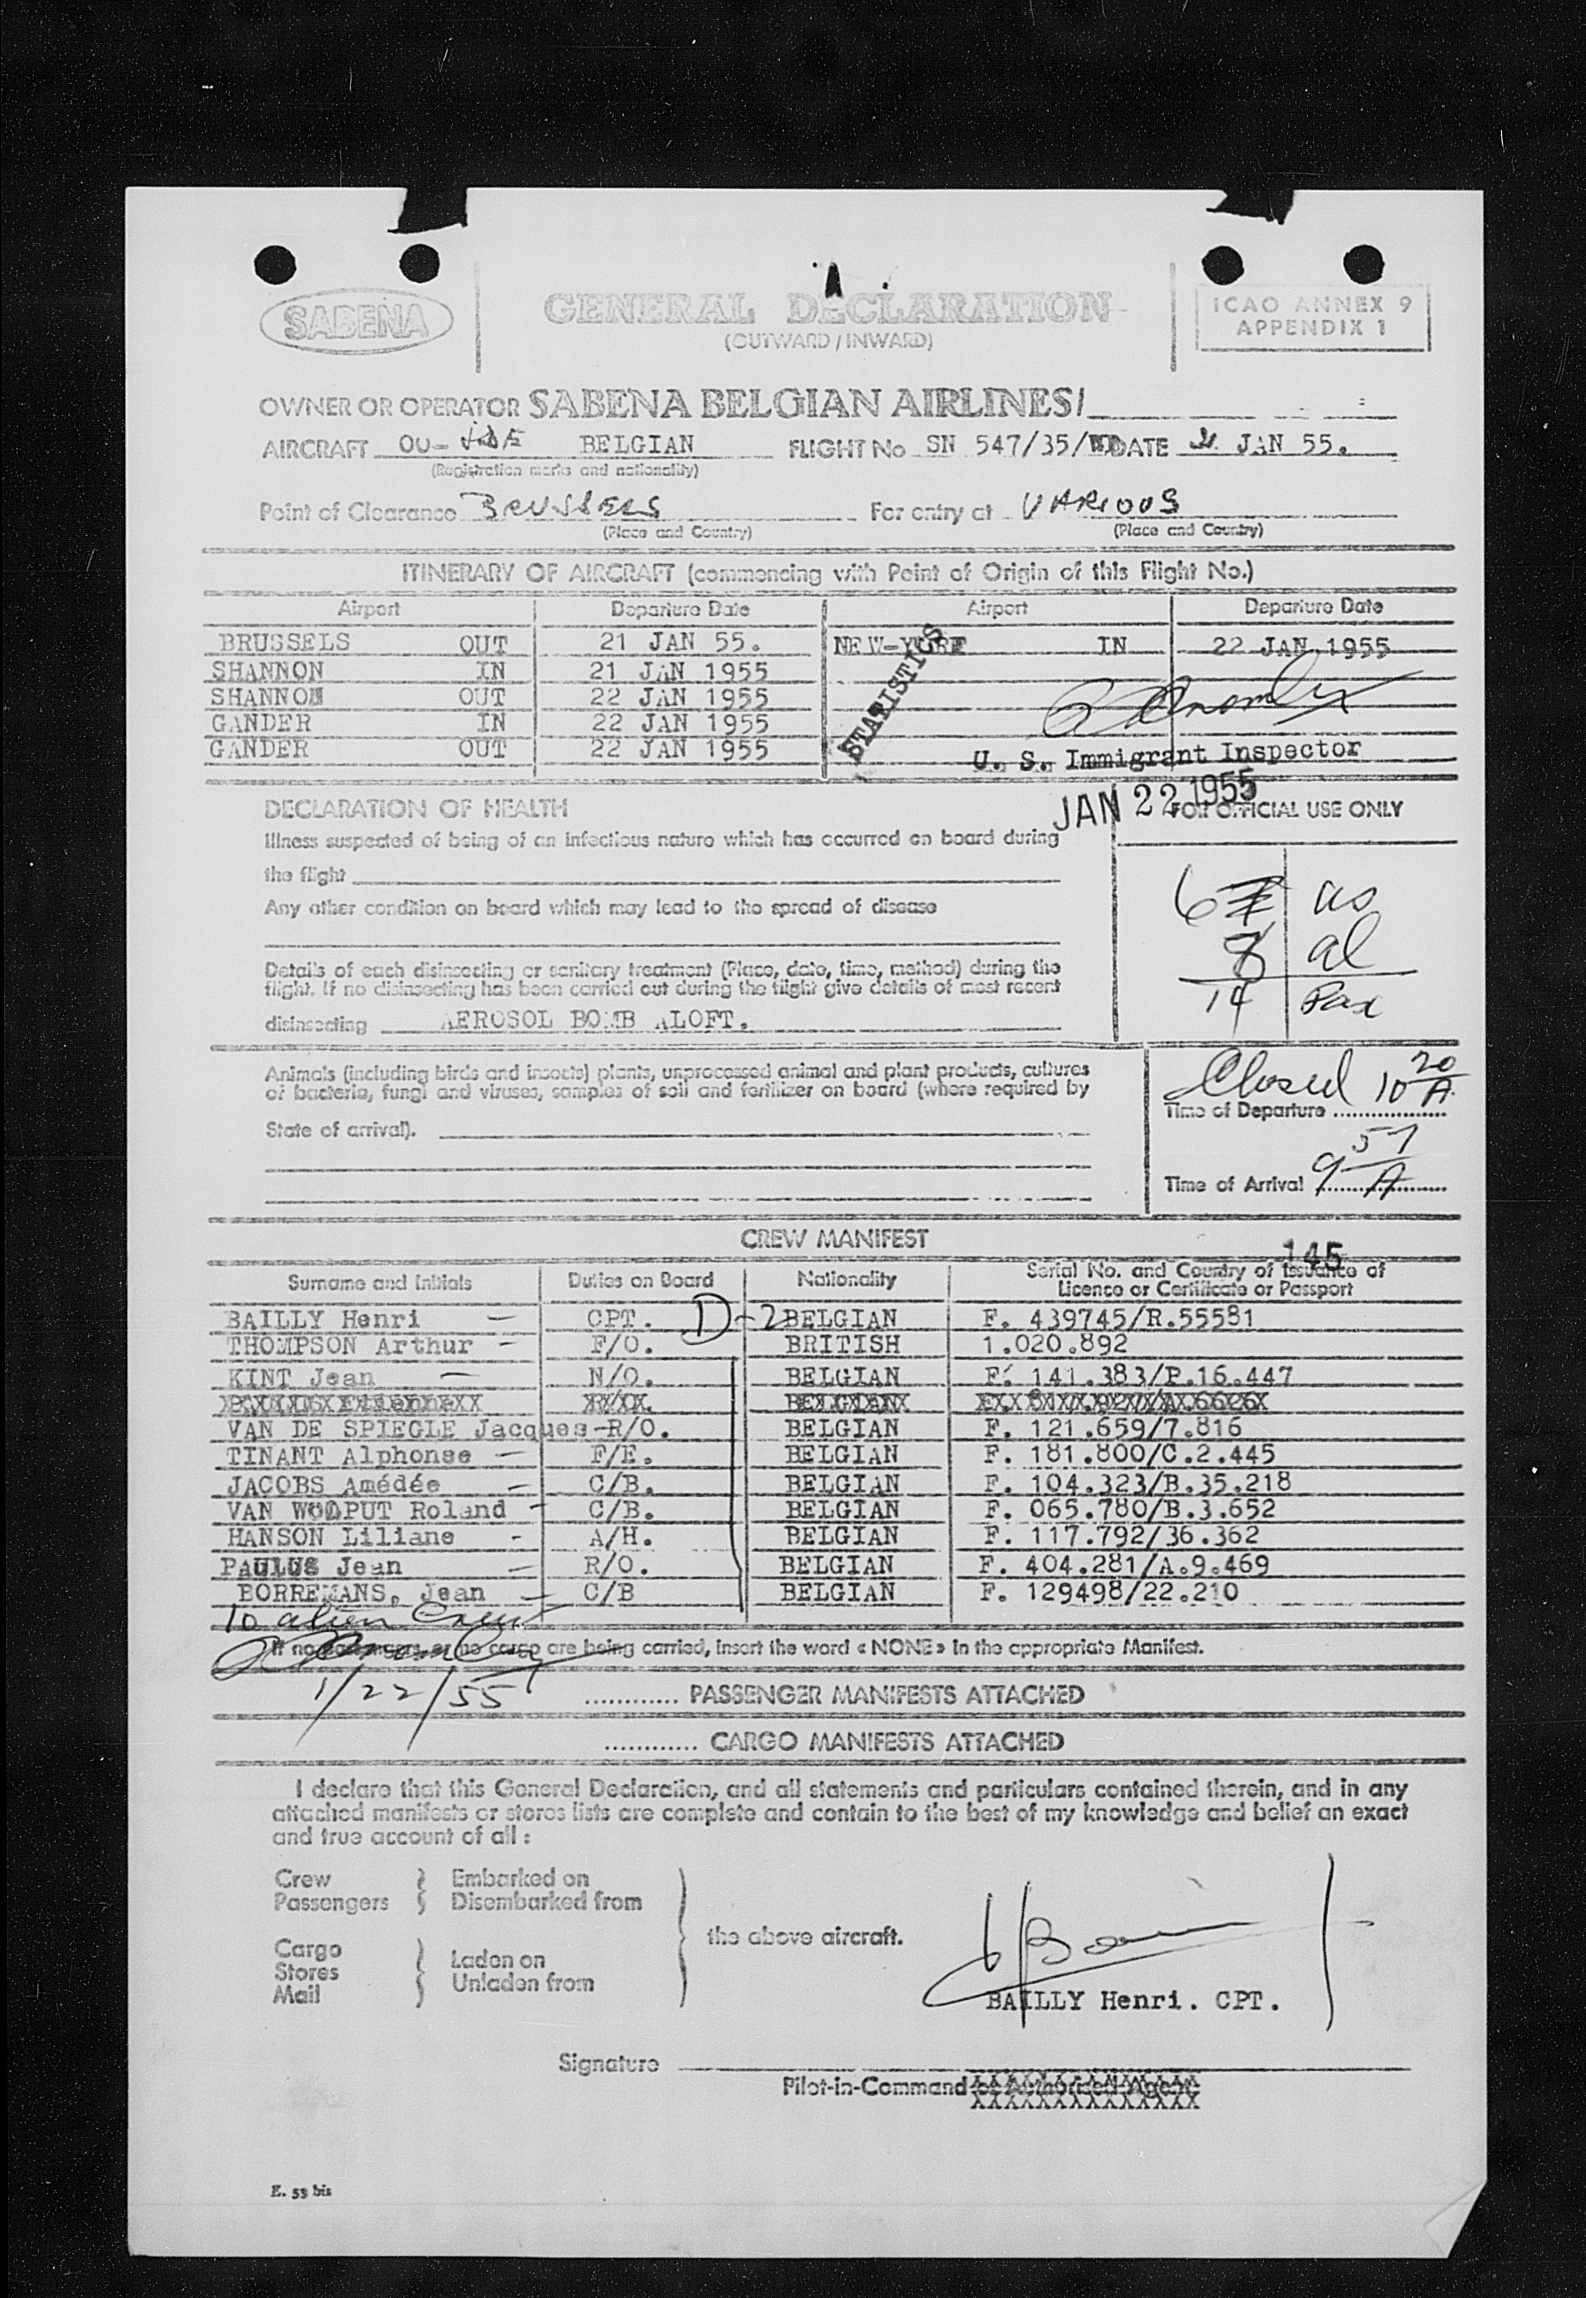 SABENA
GENERAL DECLARATION
(OUTWARD / INWARD)
ICAO ANNEX 9
APPENDIX 1
OWNER OR OPERATOR SABENA BELGIAN AIRLINES/
AIRCRAFT OO- BELGIAN FLIGHT No SN 547/35/ DATE JAN 55.
(Registration marks and nationality)
Point of Clearance BRUSSELS For entry at VARIOUS
(Place and Country) (Place and Country)
ITINERARY OF AIRCRAFT (commencing with Point of Origin of this Flight No.)
Airport Departure Date Airport Departure Date
BRUSSELS OUT 21 JAN 55. NEW-YORK IN 22 JAN 1955
SHANNON IN 21 JAN 1955
SHANNON OUT 22 JAN 1955
GANDER IN 22 JAN 1955
GANDER OUT 22 JAN 1955
STATISTICS
U. S. Immigrant Inspector
JAN 22 1955
DECLARATION OF HEALTH
FOR OFFICIAL USE ONLY
Illness suspected of being of an infectious nature which has occurred on board during
the flight
Any other condition on board which may lead to the spread of disease
6 us
8 al
14 Pax
Details of each disinsecting or sanitary treatment (Place, date, time, method) during the
flight. If no disinsecting has been carried out during the flight give details of most recent
disinsecting AEROSOL BOMB ALOFT.
Animals (including birds and insects) plants, unprocessed animal and plant products, cultures
of bacteria, fungi and viruses, samples of soil and fertilizer on board (where required by
State of arrival).
Closed 10 20 A
Time of Departure
Time of Arrival 9 57 A
CREW MANIFEST
145
Surname and Initials Duties on Board Nationality Serial No. and Country of Issuance of
Licence or Certificate or Passport
BAILLY Henri - CPT. D-2 BELGIAN F. 439745/R.55581
THOMPSON Arthur - F/O. BRITISH 1.020.892
KINT Jean - N/O. BELGIAN F. 141.383/P.16.447
VAN DE SPIEGLE Jacques-R/O. BELGIAN F. 121.659/7.816
TINANT Alphonse - F/E. BELGIAN F. 181.800/C.2.445
JACOBS Amédée - C/B. BELGIAN F. 104.323/B.35.218
VAN WOLPUT Roland - C/B. BELGIAN F. 065.780/B.3.652
HANSON Liliane - A/H. BELGIAN F. 117.792/36.362
PAULUS Jean - R/O. BELGIAN F. 404.281/A.9.469
BORREMANS, Jean - C/B BELGIAN F. 129498/22.210
10 alien Crew
If no passengers or no cargo are being carried, insert the word « NONE » in the appropriate Manifest.
1/22/55
............ PASSENGER MANIFESTS ATTACHED
............ CARGO MANIFESTS ATTACHED
I declare that this General Declaration, and all statements and particulars contained therein, and in any
attached manifests or stores lists are complete and contain to the best of my knowledge and belief an exact
and true account of all :
Crew Embarked on
Passengers Disembarked from
the above aircraft.
Cargo Laden on
Stores
Unladen from
Mail
BAILLY Henri. CPT.
Signature
Pilot-in-Command or Authorised Agent
E. 53 bis